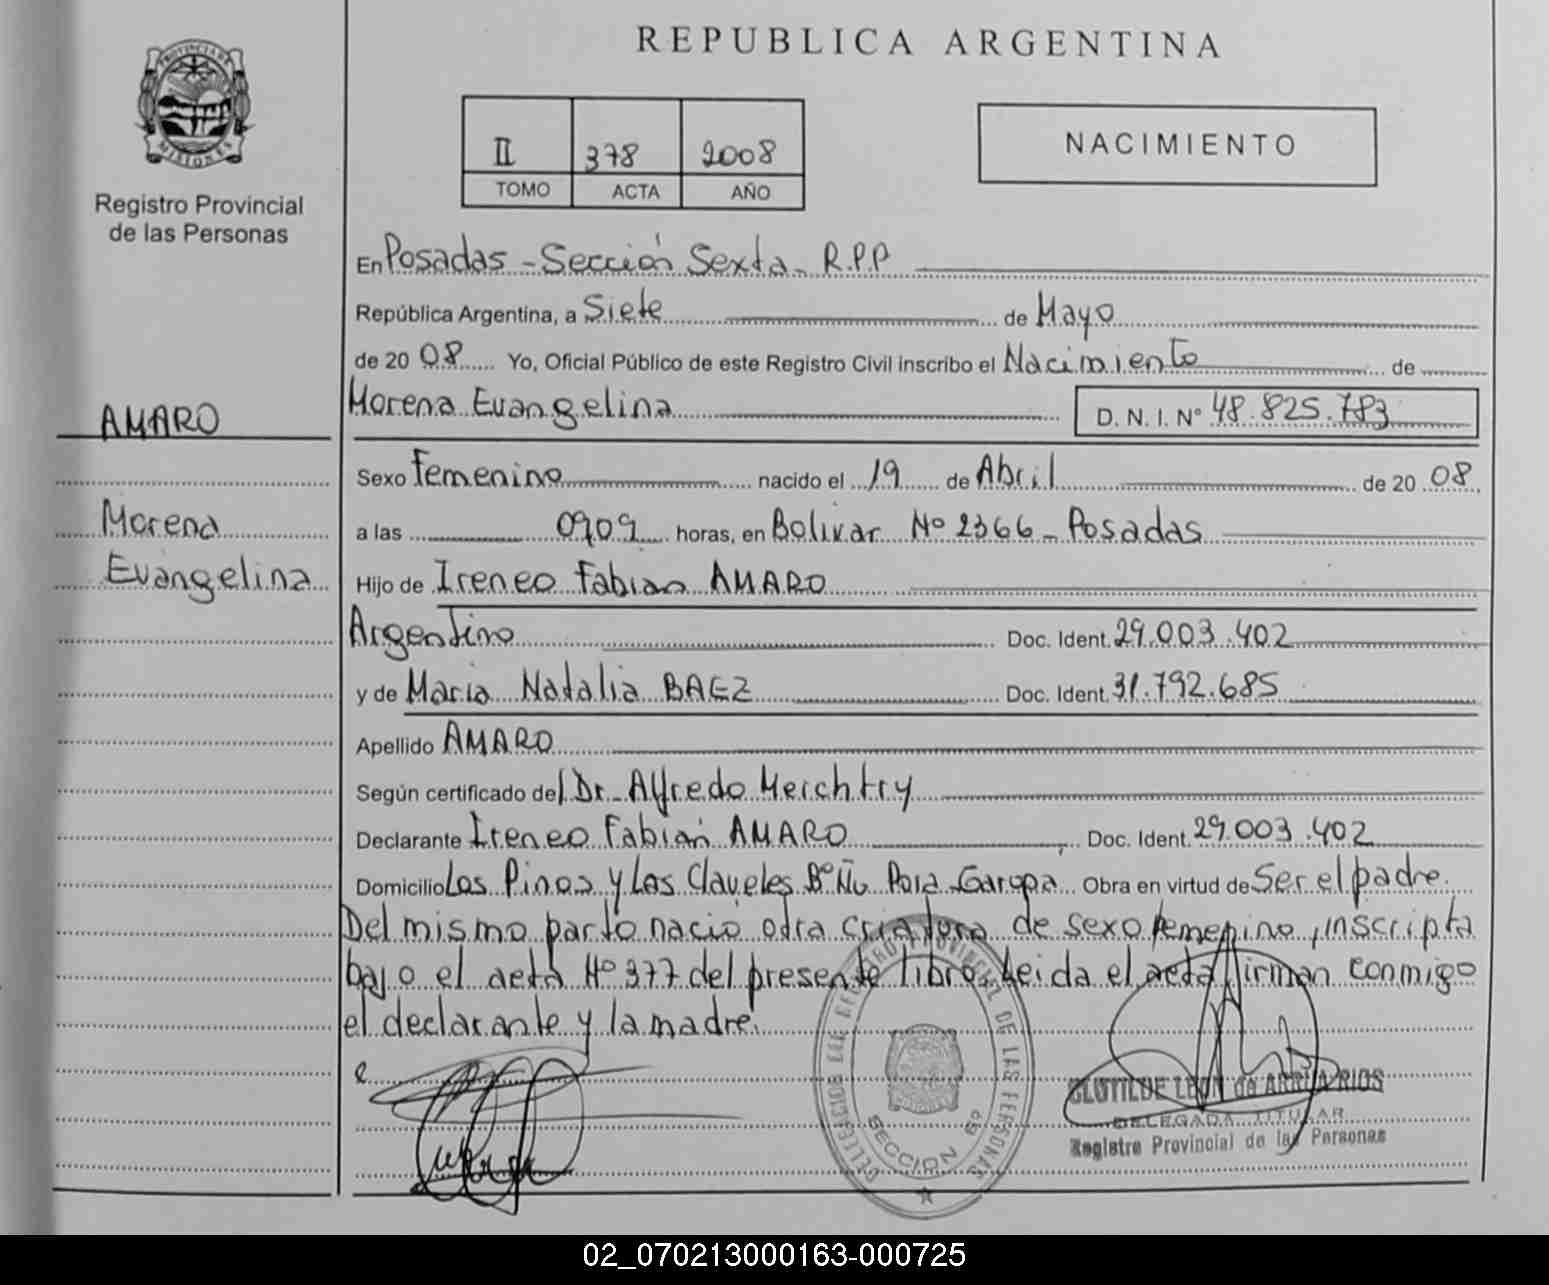 PROVINCIA DE
MISIONES
Registro Provincial
de las Personas
AMARO
Morena
Evangelina
REPUBLICA ARGENTINA
II 378 2008
TOMO ACTA AÑO
NACIMIENTO
En Posadas - Sección Sexta - R.P.P
República Argentina, a Siete de Mayo
de 20 08 Yo, Oficial Público de este Registro Civil inscribo el Nacimiento de
Morena Evangelina D. N. I. Nº 48.825.783
Sexo Femenino nacido el 19 de Abril de 20 08
a las 0909 horas, en Bolivar Nº 2366 - Posadas
Hijo de Ireneo Fabian AMARO
Argentino Doc. Ident. 29.003.402
y de Maria Natalia BAEZ Doc. Ident. 31.792.685
Apellido AMARO
Según certificado del Dr. Alfredo Merchtry
Declarante Ireneo Fabian AMARO Doc. Ident. 29.003.402
Domicilio Los Pinos y Los Claveles Bº Ñu Pora Garupa Obra en virtud de Ser el padre.
Del mismo parto nació otra criatura de sexo femenino, inscripta
bajo el acta Nº 377 del presente libro. Leida el acta firman conmigo
el declarante y la madre.
DELEGACION DEL REGISTRO PROVINCIAL DE LAS PERSONAS
SECCION 6º
CLOTILDE LEON de ARRUA RIOS
DELEGADA TITULAR
Registro Provincial de las Personas
02_070213000163-000725